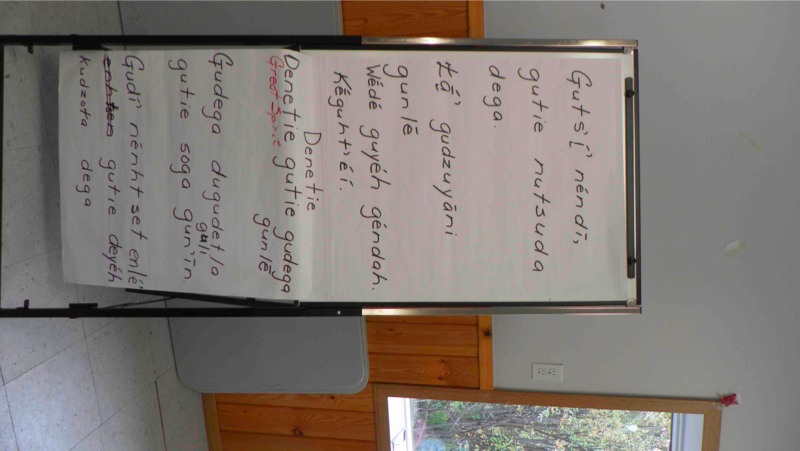 Gutsʼį́ʼ néndī,
gutie nutsuda
dega.
Łą́ʼ gudzuyāni
gunlē
Wédé guyéh géndah.
Kéguhtʼéī.
Denetie
Denetie gutie gudega
Great Spirit gunlē
Gudega dugudetļa
guli
gutie soga gunʼīn.
Gudíʼ nénht set enlé
gutie deyéh
kudzota dega